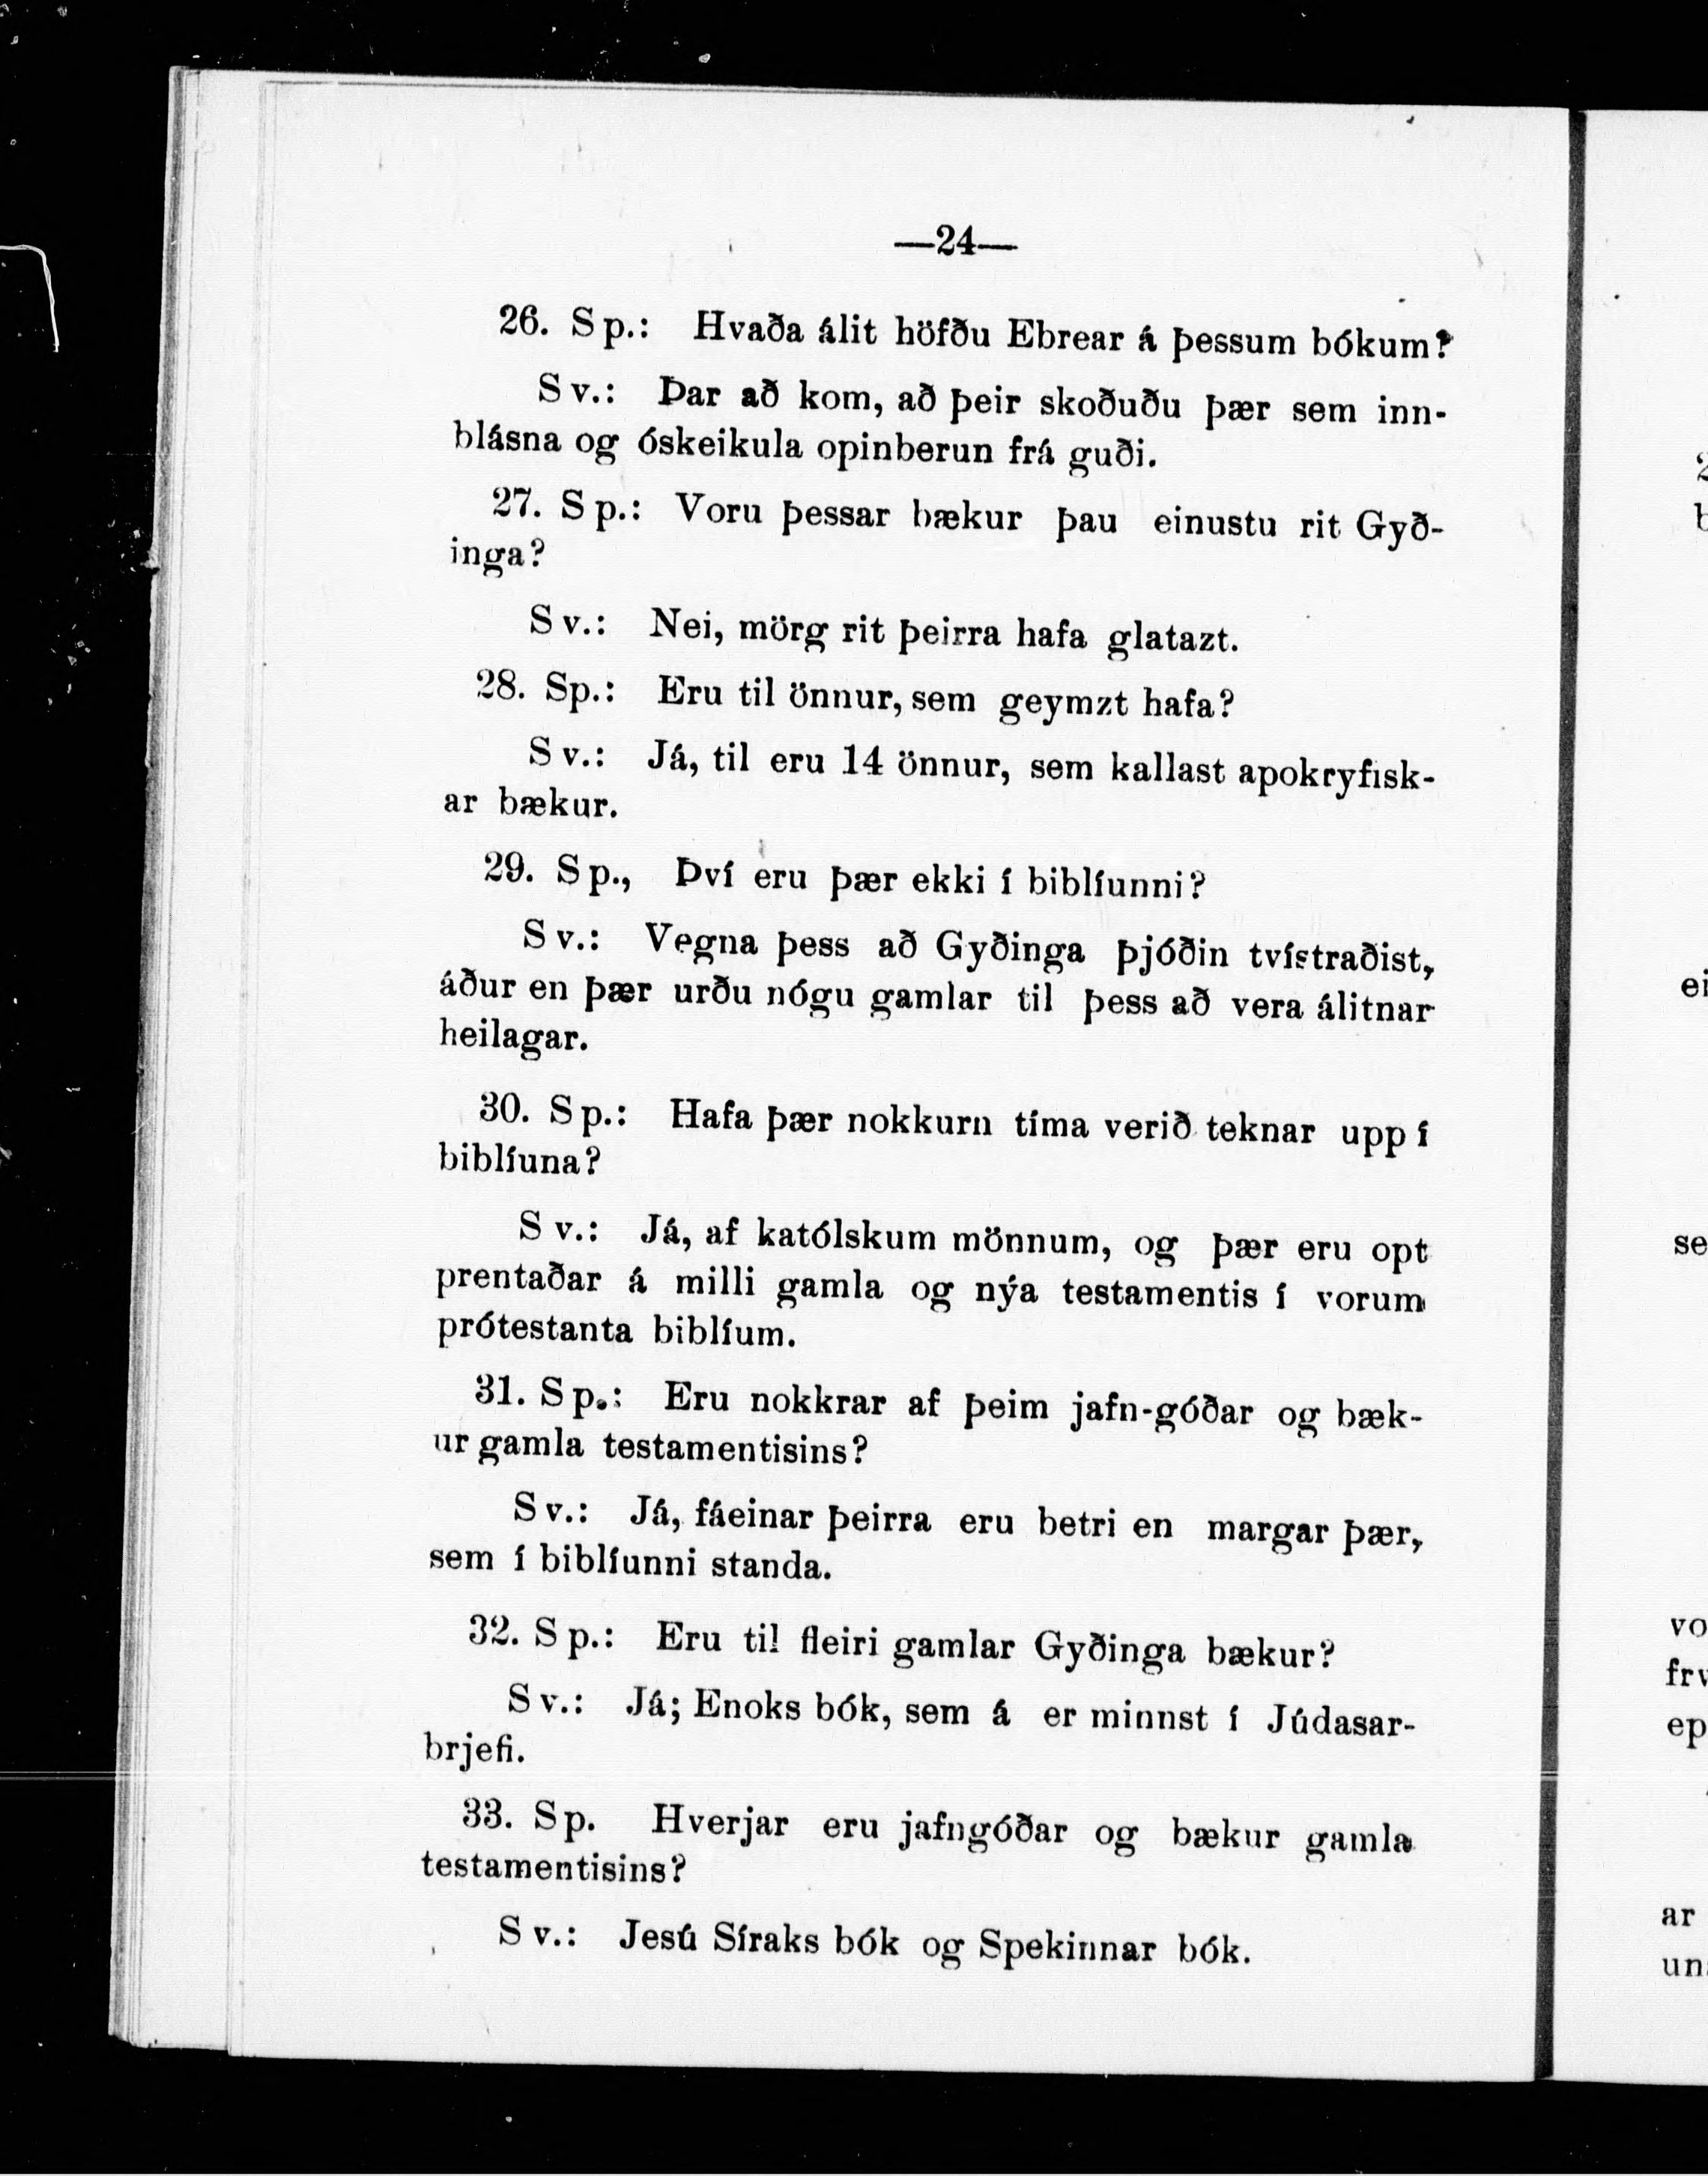 —24—
26. Sp.: Hvaða álit höfðu Ebrear á þessum bókum?
Sv.: Þar að kom, að þeir skoðuðu þær sem inn-
blásna og óskeikula opinberun frá guði.
27. Sp.: Voru þessar bækur þau einustu rit Gyð-
inga?
Sv.: Nei, mörg rit þeirra hafa glatazt.
28. Sp.: Eru til önnur, sem geymzt hafa?
Sv.: Já, til eru 14 önnur, sem kallast apokryfisk-
ar bækur.
29. Sp., Því eru þær ekki í biblíunni?
Sv.: Vegna þess að Gyðinga þjóðin tvístraðist,
áður en þær urðu nógu gamlar til þess að vera álitnar
heilagar.
30. Sp.: Hafa þær nokkurn tíma verið teknar upp í
biblíuna?
Sv.: Já, af katólskum mönnum, og þær eru opt
prentaðar á milli gamla og nýa testamentis í vorum
prótestanta biblíum.
31. Sp.: Eru nokkrar af þeim jafn-góðar og bæk-
ur gamla testamentisins?
Sv.: Já, fáeinar þeirra eru betri en margar þær,
sem í biblíunni standa.
32. Sp.: Eru til fleiri gamlar Gyðinga bækur?
Sv.: Já; Enoks bók, sem á er minnst í Júdasar-
brjefi.
33. Sp. Hverjar eru jafngóðar og bækur gamla
testamentisins?
Sv.: Jesú Síraks bók og Spekinnar bók.